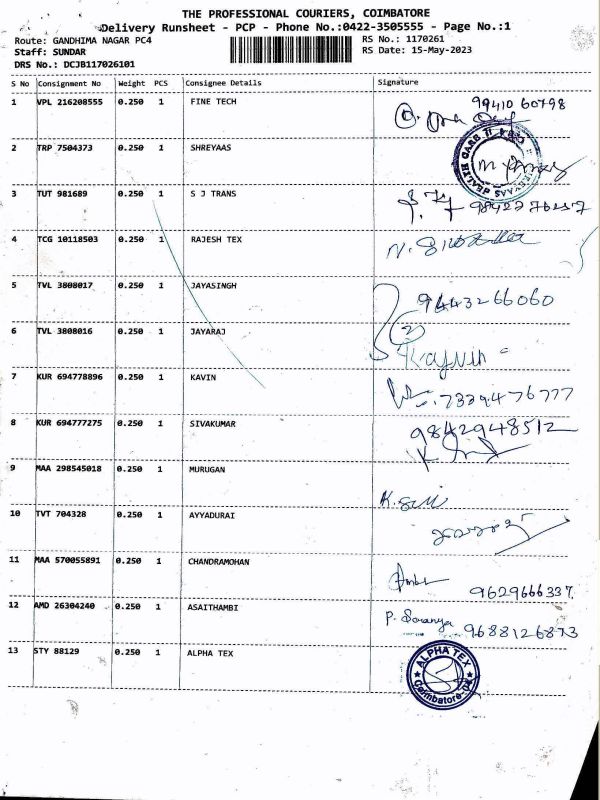 THE PROFESSIONAL COURIERS, COIMBATORE
Delivery Runsheet - PCP - Phone No.:0422-3505555 - Page No.:1
Route: GANDHIMA NAGAR PC4 RS No.: 1170261
Staff: SUNDAR RS Date: 15-May-2023
DRS No.: DCJB117026101
S No Consignment No Weight PCS Consignee Details Signature
1 VPL 216208555 0.250 1 FINE TECH 99410 60798
2 TRP 7504373 0.250 1 SHREYAAS
3 TUT 981689 0.250 1 S J TRANS
4 TCG 10118503 0.250 1 RAJESH TEX
5 TVL 3808017 0.250 1 JAYASINGH 9443266060
6 TVL 3808016 0.250 1 JAYARAJ (2)
7 KUR 694778896 0.250 1 KAVIN 7339476777
8 KUR 694777275 0.250 1 SIVAKUMAR 9842948512
9 MAA 298545018 0.250 1 MURUGAN
10 TVT 704328 0.250 1 AYYADURAI
11 MAA 570055891 0.250 1 CHANDRAMOHAN 9629666337.
12 AMD 26304240 0.250 1 ASAITHAMBI P. Saranya 9688126873
13 STY 88129 0.250 1 ALPHA TEX ALPHA TEX Coimbatore